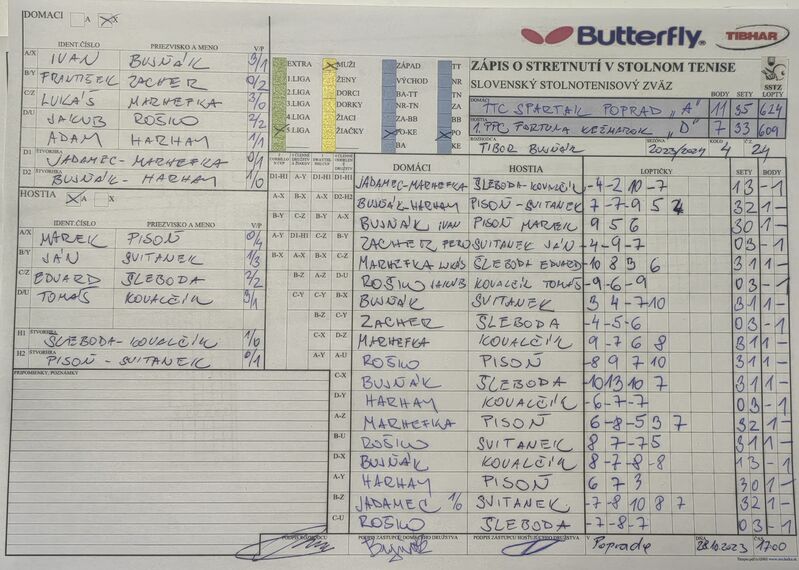 DOMACI A X
Butterfly. TIBHAR
IDENT.ČÍSLO PRIEZVISKO A MENO V/P
A/X IVAN BUJŇÁK 3/1
B/Y FRANTIŠEK ZACHER 0/2
C/Z LUKÁŠ MARHEFKA 3/0
D/U JAKUB ROŠKO 2/2
ADAM HARHAY 1/1
D1 ŠTVORHRA JADAMEC-MARHEFKA 0/1
D2 ŠTVORHRA BUJŇÁK-HARHAY 1/0
EXTRA MUŽI ZÁPAD TT
1.LIGA ŽENY VÝCHOD NR
2.LIGA DORCI BA-TT ZA
3.LIGA DORKY NR-TN
4.LIGA ŽIACI ZA-BB
5.LIGA ŽIAČKY PO-KE
BA
ZÁPIS O STRETNUTÍ V STOLNOM TENISE
SLOVENSKÝ STOLNOTENISOVÝ ZVÄZ
SSTZ
BODY SETY LOPTY
DOMÁCI TTC SPARTAK POPRAD „A" 11 35 624
HOSTIA 1. PPC FORTUNA KEŽMAROK „D" 7 33 609
ROZHODCA SEZÓNA KOLO Č.
TIBOR BUJŇÁK 2023/2024 4 24
HOSTIA X A
IDENT.ČÍSLO PRIEZVISKO A MENO V/P
A/X MAREK PISOŇ 0/4
B/Y JÁN SVITANEK 1/3
C/Z EDUARD ŠLEBODA 2/2
D/U TOMÁŠ KOVALČÍK 3/1
H1 ŠTVORHRA ŠLEBODA-KOVALČÍK 1/0
H2 ŠTVORHRA PISOŇ-SVITANEK 0/1
PRIPOMIENKY, POZNÁMKY
DOMÁCI HOSTIA LOPTIČKY SETY BODY
JADAMEC-MARHEFKA ŠLEBODA-KOVALČÍK -4-2 10 -7 1 3 - 1
BUJŇÁK-HARHAY PISOŇ-SVITANEK 7 -7 -9 5 4 3 2 1 -
BUJŇÁK IVAN PISOŇ MAREK 9 5 6 3 0 1 -
ZACHER FERO SVITANEK JÁN -4 -9 -7 0 3 - 1
MARHEFKA LUKÁŠ ŠLEBODA EDUARD -10 8 3 6 3 1 1 -
ROŠKO JAKUB KOVALČÍK TOMÁŠ -9 -6 -9 0 3 - 1
BUJŇÁK SVITANEK 3 4 -7 10 3 1 1 -
ZACHER ŠLEBODA -4 -5 -6 0 3 - 1
MARHEFKA KOVALČÍK 9 -7 6 8 3 1 1 -
ROŠKO PISOŇ -8 9 7 10 3 1 1 -
BUJŇÁK ŠLEBODA -10 13 10 7 3 1 1 -
HARHAY KOVALČÍK -6 -7 -7 0 3 - 1
MARHEFKA PISOŇ -6 -8 5 3 7 3 2 1 -
ROŠKO SVITANEK 8 7 -7 5 3 1 1 -
BUJŇÁK KOVALČÍK 8 -7 -8 -8 1 3 - 1
HARHAY PISOŇ 6 7 3 3 0 1 -
JADAMEC 1/0 SVITANEK -7 -8 10 8 7 3 2 1 -
ROŠKO ŠLEBODA -7 -8 -7 0 3 - 1
PODPIS ROZHODCU PODPIS ZÁSTUPCU DOMÁCEHO DRUŽSTVA PODPIS ZÁSTUPCU HOSTÍ DRUŽSTVA V Poprade DŇA 28.10.2023 ČAS 17:00